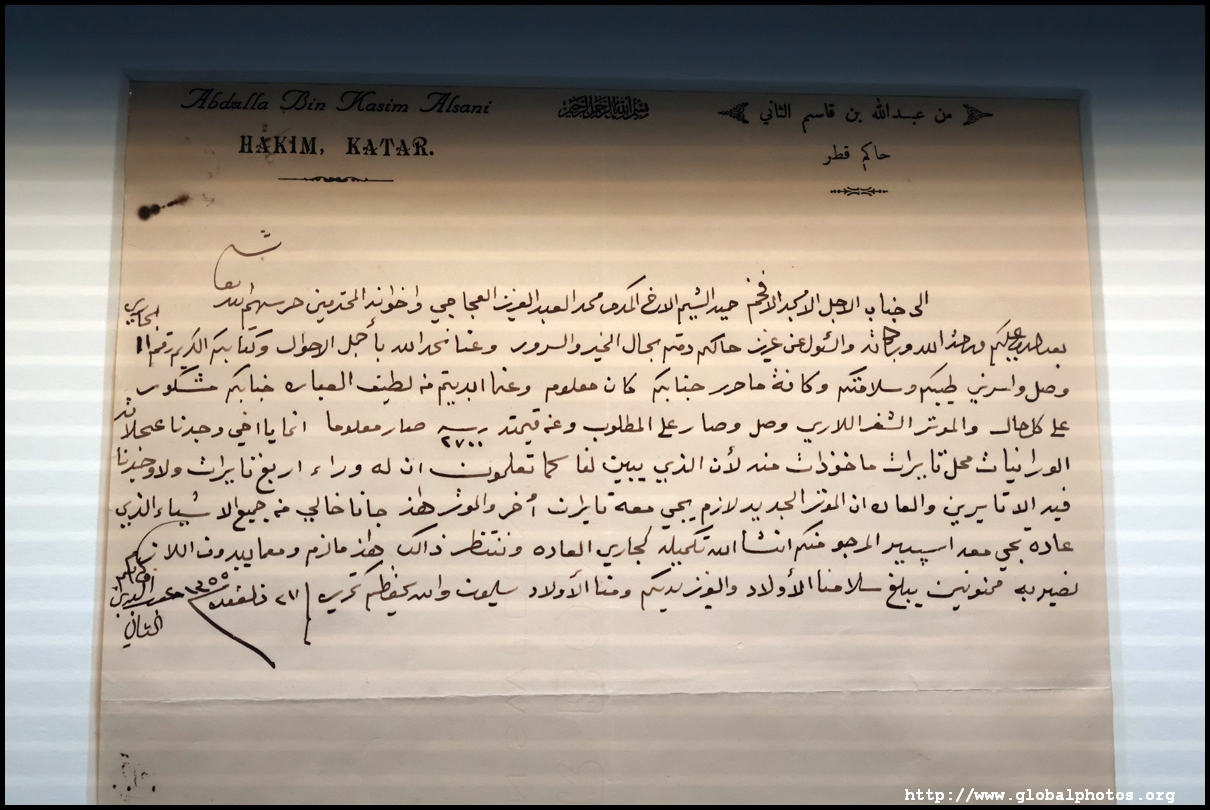 Abdulla Bin Kasim Alsani
HAKIM, KATAR.
بسم الله الرحمن الرحيم
من عبدالله بن قاسم الثاني
حاكم قطر
الى جناب الاجل الامجد الافخم حميد الشيم الاخ المكرم محمد العبد العزيز العجاجي واخوانه المحترمين حرسهم الله تعالى
بعد السلام عليكم ورحمة الله وبركاته والسئول عن عزيز خاطركم دمتم بحال الخير والسرور وعنا نحمد الله بأجمل الاحوال وكتابكم الكريم رقم ١١ الجاري
وصل واسرني طيبكم وسلامتكم وكافة ما حرر جنابكم كان معلوم وعما ابديتم من لطيف العباره جنابكم مشكور
على كل حال والموتر الشفر اللاري وصل وصار على المطلوب وعن قيمته ربيه ٢٧٠٠ صار معلوما انما يا اخي وجدنا عجلاته
الورانيات محل تايرات ماخوذات منه لأن الذي يبين لنا كما تعلمون ان له وراء اربع تايرات ولا وجدنا
فيه الا تايرين والعاده ان الموتر الجديد لازم يجي معه تايرات أخر والموتر هذا جانا خالي من جميع الاشياء الذي
عاده تجي معه اسبير المرجو منكم انشا الله تكميله كجاري العاده وننتظر ذالك هذا ما لزم ومما يبدو من اللازم
نصير به ممنونين يبلغ سلامنا الأولاد والعزيز لديكم ومنا الأولاد يسلمون والله يحفظكم تحريره ٢٧ ذلقعده ١٣٥٥
الثاني
http://www.globalphotos.org